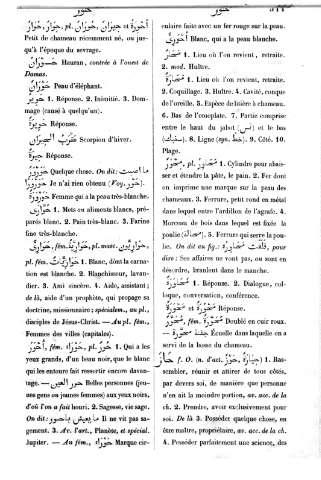 حور
حُوَارٌ, حِوَارٌ, pl. حِيرَانٌ et أَحْوِرَةٌ
Petit de chameau récemment né, ou jus-
qu'à l'époque du sevrage.
حَوْرَانُ Hauran, contrée à l'ouest de
Damas.
حَوْرَانٌ Peau d'éléphant.
حَوِيرٌ 1. Réponse. 2. Inimitié. 3. Dom-
mage (causé à quelqu'un).
Réponse.
عَقْرَبُ الحِيرَانِ Scorpion d'hiver.
حِيرَةٌ Réponse.
Quelque chose. On dit: ما اصبت
Je n'ai rien obtenu (Voy. حور).
Femme qui a la peau très-blanche.
حُوَّارَى 1. Mets ou aliments blancs, pré-
parés blanc. 2. Pain très-blanc. 3. Farine
fine très-blanche.
حَوَارِيٌّ, fém. حَوَارِيَّةٌ, pl. masc. حَوَارِيُّونَ,
pl. fém. حَوَارِيَّاتٌ 1. Blanc, dont la carna-
tion est blanche. 2. Blanchisseur, lavan-
dier. 3. Ami sincère. 4. Aide, assistant;
de là, aide d'un prophète, qui propage sa
doctrine, missionnaire; spécialem., au pl.,
disciples de Jésus-Christ. — Au pl. fém.,
Femmes des villes (capitales).
أَحْوَرُ, fém. حَوْرَاءُ, pl. حُورٌ 1. Qui a les
yeux grands, d'un beau noir, que le blanc
qui les entoure fait ressortir encore davan-
tage. — حور العين Belles personnes (jeu-
nes gens ou jeunes femmes) aux yeux noirs,
d'où l'on a fait houri. 2. Sagesse, vie sage.
On dit: ما يعيش باحور Il ne vit pas sa-
gement. 3. Av. l'art., Planète, et spécial.
Jupiter. — Au fém., حَوْرَاءُ Marque cir-
حور
culaire faite avec un fer rouge sur la peau.
أَحْوَرِيٌّ Blanc, qui a la peau blanche.
مَحَارٌ 1. Lieu où l'on revient, retraite.
2. mod. Huître.
مَحَارَةٌ 1. Lieu où l'on revient, retraite.
2. Coquillage. 3. Huître. 4. Cavité, conque
de l'oreille. 5. Espèce de litière à chameau.
6. Bas de l'omoplate. 7. Partie comprise
entre le haut du sabot et le bas
8. Ligne (syn. خط). 9. Côté. 10.
Plage.
مِحْوَرٌ, pl. مَحَاوِرُ 1. Cylindre pour abais-
ser et étendre la pâte, le pain. 2. Fer dont
on imprime une marque sur la peau des
chameaux. 3. Ferrure, petit rond en métal
dans lequel entre l'ardillon de l'agrafe. 4.
Morceau de bois dans lequel est fixée la
poulie. 5. Ferrure qui serre la pou-
lie. On dit au fig.: قلقت محاوره, pour
dire: Ses affaires ne vont pas, ou sont en
désordre, branlent dans le manche.
1. Réponse. 2. Dialogue, col-
loque, conversation, conférence.
et Réponse.
مُحَوَّرٌ, fém. مُحَوَّرَةٌ Doublé en cuir roux.
— جفنة محورة Écuelle dans laquelle on a
servi de la bosse du chameau.
حَازَ f. O. (n. d'act. حَوْزٌ, حِيَازَةٌ) 1. Ras-
sembler, réunir et attirer de tous côtés,
par devers soi, de manière que personne
n'en ait la moindre portion, av. acc. de la
ch. 2. Prendre, avoir exclusivement pour
soi. De là 3. Posséder quelque chose, en
être maître, propriétaire, av. acc. de la ch.
4. Posséder parfaitement une science, des